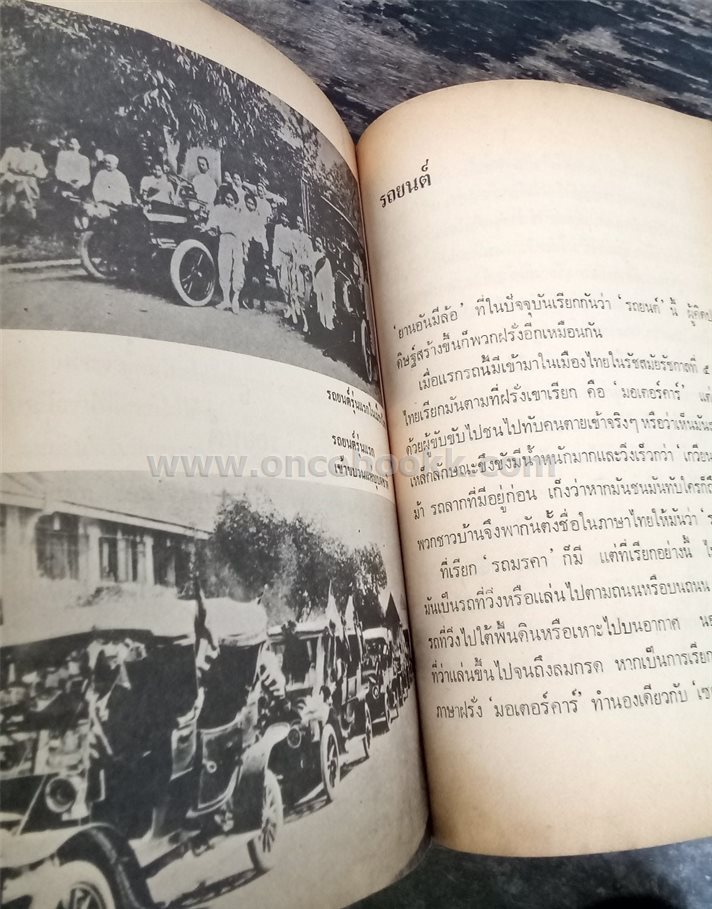 รถยนต์รุ่นแรก
รถยนต์รุ่นแรก
www.oncebookk.com
รถยนต์
'ยานอันมีล้อ' ที่ในปัจจุบันเรียกกันว่า 'รถยนต์' นี้
ดิษฐ์สร้างขึ้นก็พวกฝรั่งอีกเหมือนกัน
เมื่อแรกรถนี้มีเข้ามาในเมืองไทยในรัชสมัยรัชกาลที่ ๕
ไทยเรียกมันตามที่ฝรั่งเขาเรียก คือ 'มอเตอร์คาร์' แต่
ด้วยผู้ขับขับไปชนไปทับคนตายเข้าจริงๆ หรือว่าเห็นมัน
เหล็กลักษณะขึงขังมีน้ำหนักมากและวิ่งเร็วกว่า 'เกวียน
ม้า รถลากที่มีอยู่ก่อน เก็งว่าหากมันชนมันทับใครก็
พวกชาวบ้านจึงพากันตั้งชื่อในภาษาไทยให้มันว่า
ที่เรียก 'รถมรคา' ก็มี แต่ที่เรียกอย่างนั้น
มันเป็นรถที่วิ่งหรือแล่นไปตามถนนหรือบนถนน
รถที่วิ่งไปใต้พื้นดินหรือเหาะไปบนอากาศ
ที่ว่าแล่นขึ้นไปจนถึงลมกรด หากเป็นการเรียก
ภาษาฝรั่ง 'มอเตอร์คาร์' ทำนองเดียวกับ